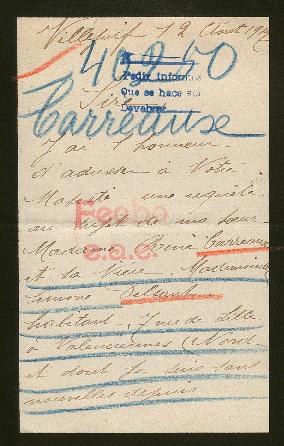 Villejuif 12 Août
40250
Pedir informes
Que se hace su
Devolver
Sire
Carreaux
J'ai l'honneur
d'adresser à Votre
Majesté une requête
au sujet de ma sœur
Madame René Carreaux
et sa nièce, Mademoiselle
Simone
Fecho
c.a.c.
habitant 7 rue de Lille
à Valenciennes (Nord
et dont je suis sans
nouvelles depuis